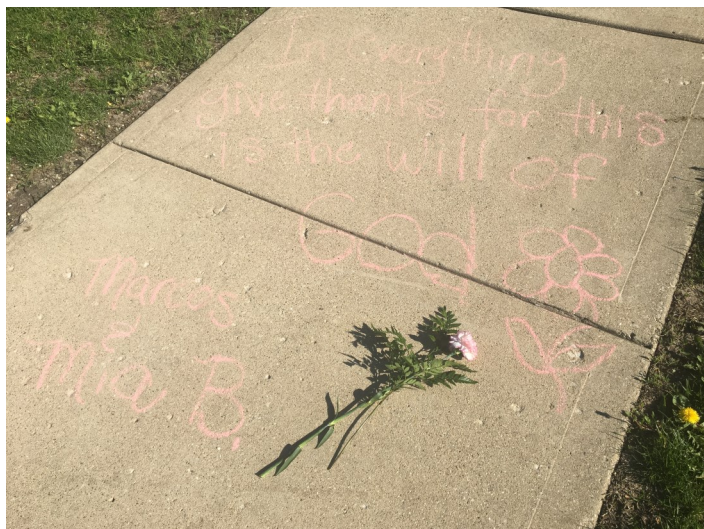 In everything
give thanks for this
is the will of
God
Marcos
&
Mia B.